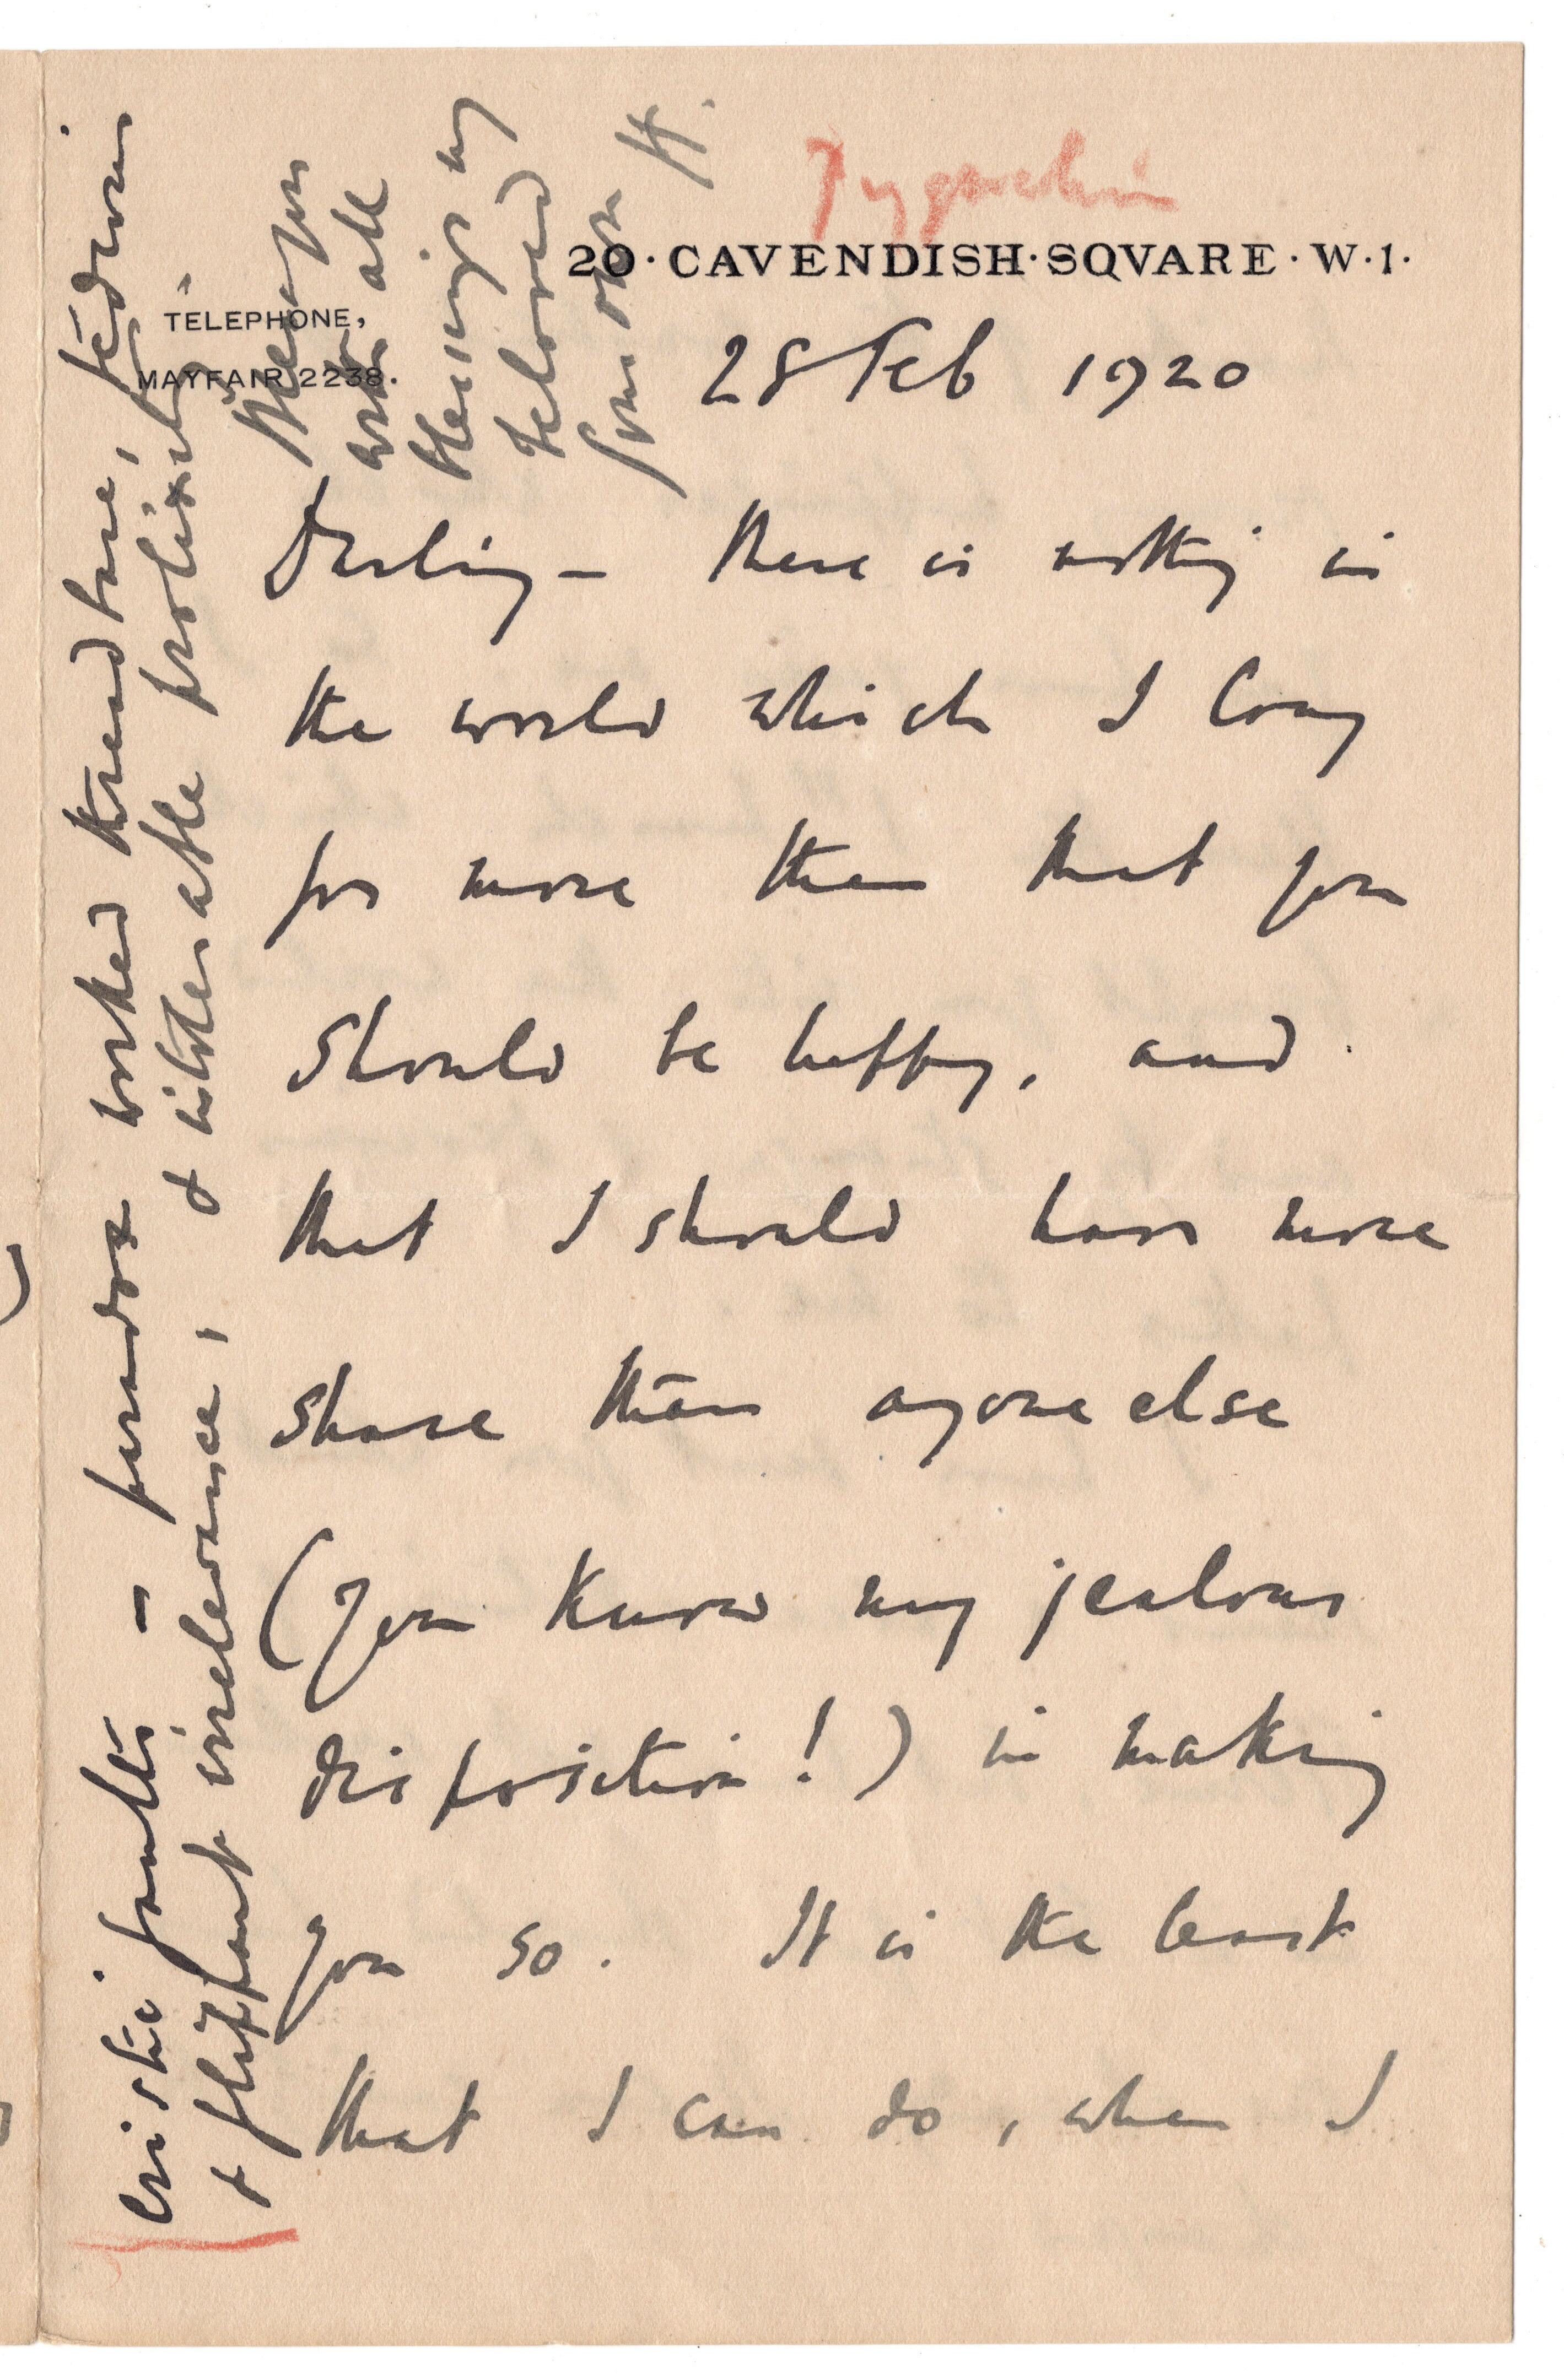 Pygmalion
20·CAVENDISH·SQVARE·W·1·
TELEPHONE,
MAYFAIR 2238.
28 Feb 1920
Darling – there is nothing in
the world which I long
for more than that you
should be happy, and
that I should have more
share than anyone else
(you know my jealous
disposition!) in making
you so. It is the least
that I can do, when I
eristic faults – paradox worked threadbare, tedious
& flippant irrelevance, & intolerable prolixity.
Bless you
with all
blessings my
beloved
your own H.